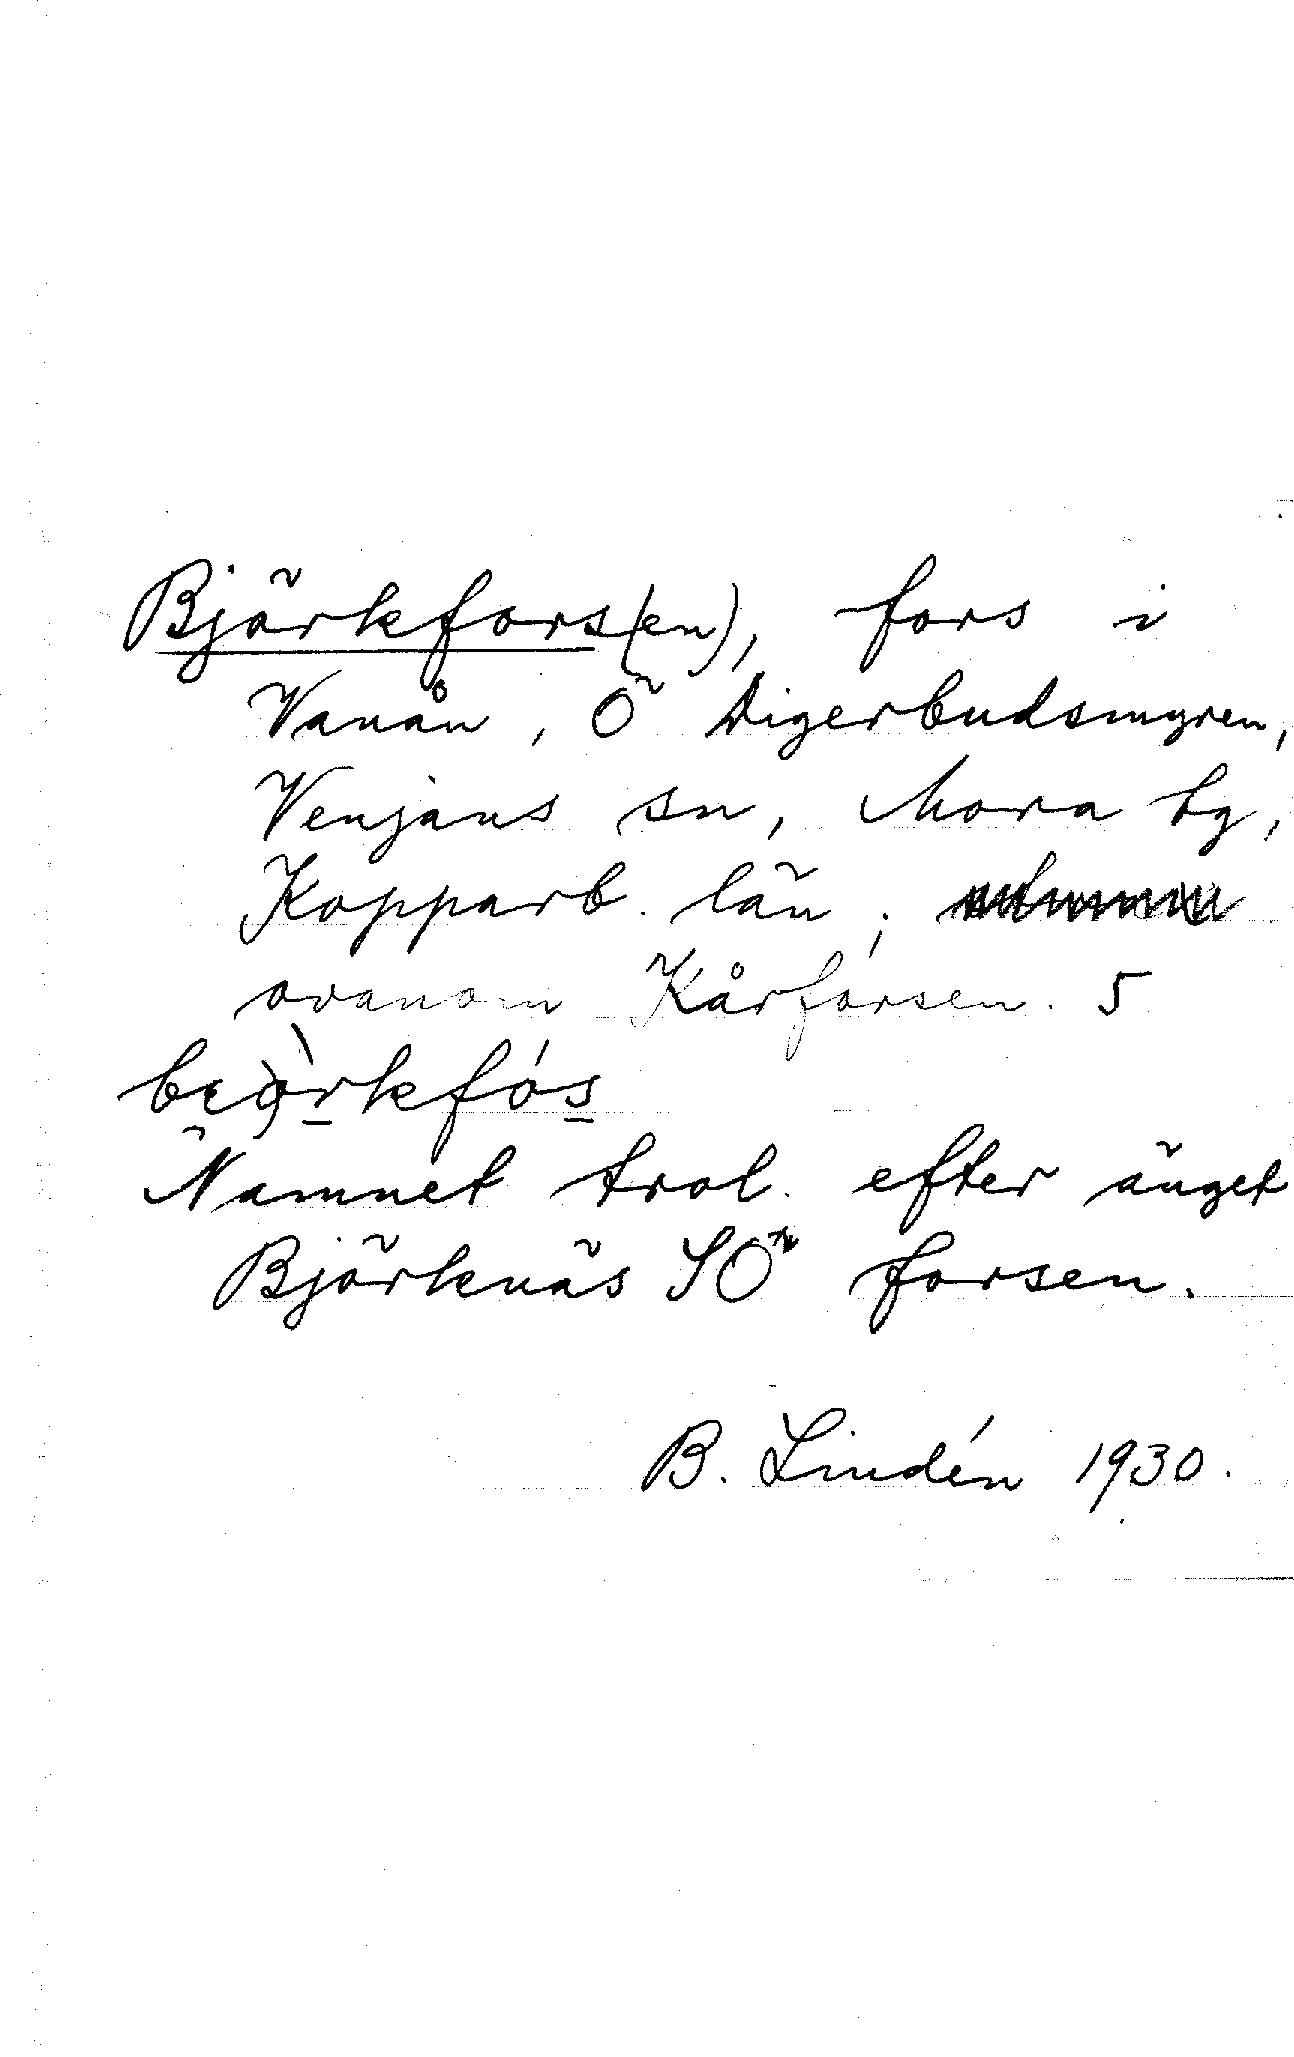 Björkfors(en), fors i
Vanån, Ö Digerbudsmyren,
Venjans sn, Mora tg,
Kopparb. län;
ovanom Kårforsen. 5
Namnet trol. efter änget
Björknäs SÖ forsen.
B. Lindén 1930.